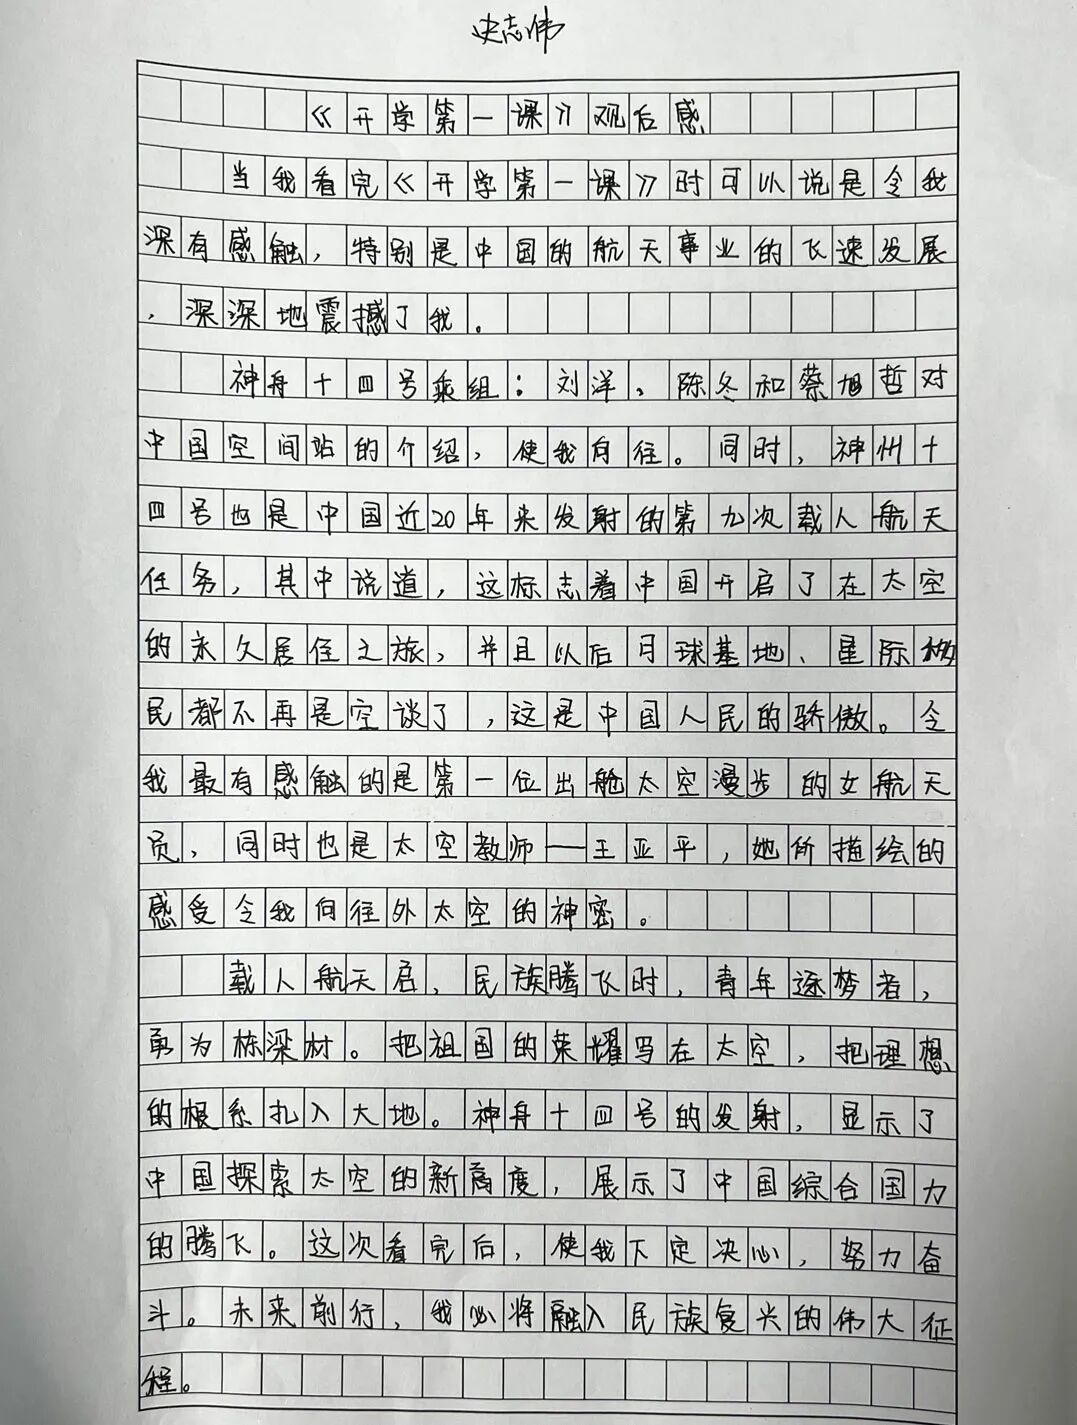 史志伟
《开学第一课》观后感
当我看完《开学第一课》时可以说是令我
深有感触,特别是中国的航天事业的飞速发展
,深深地震撼了我。
神舟十四号乘组:刘洋、陈冬和蔡旭哲对
中国空间站的介绍,使我向往。同时,神州十
四号也是中国近20年来发射的第九次载人航天
任务,其中说道,这标志着中国开启了在太空
的永久居住之旅,并且以后月球基地、星际移
民都不再是空谈了,这是中国人民的骄傲。令
我最有感触的是第一位出舱太空漫步的女航天
员,同时也是太空教师——王亚平,她所描绘的
感受令我向往外太空的神密。
载人航天启,民族腾飞时,青年逐梦者,
勇为栋深材。把祖国的荣耀写在太空,把理想
的根系扎入大地。神舟十四号的发射,显示了
中国探索太空的新高度,展示了中国综合国力
的腾飞。这次看完后,使我下定决心,努力奋
斗。未来前行,我必将融入民族复兴的伟大征
程。